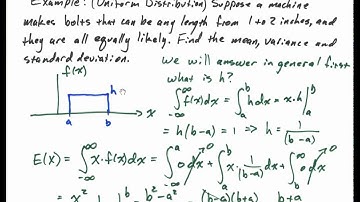 Example: (Uniform Distribution) Suppose a machine
makes bolts that can be any length from 1 to 2 inches, and
they are all equally likely. Find the mean, variance and
standard deviation.
we will answer in general first
what is h?
f(x)
h
a b x
∫_{-∞}^{∞} f(x)dx = ∫_a^b h dx = x·h |_a^b
= h(b-a) = 1 ⇒ h = 1/(b-a)
E(x) = ∫_{-∞}^{∞} x·f(x)dx = ∫_{-∞}^a 0dx + ∫_a^b x·1/(b-a) dx + ∫_b^∞ 0dx